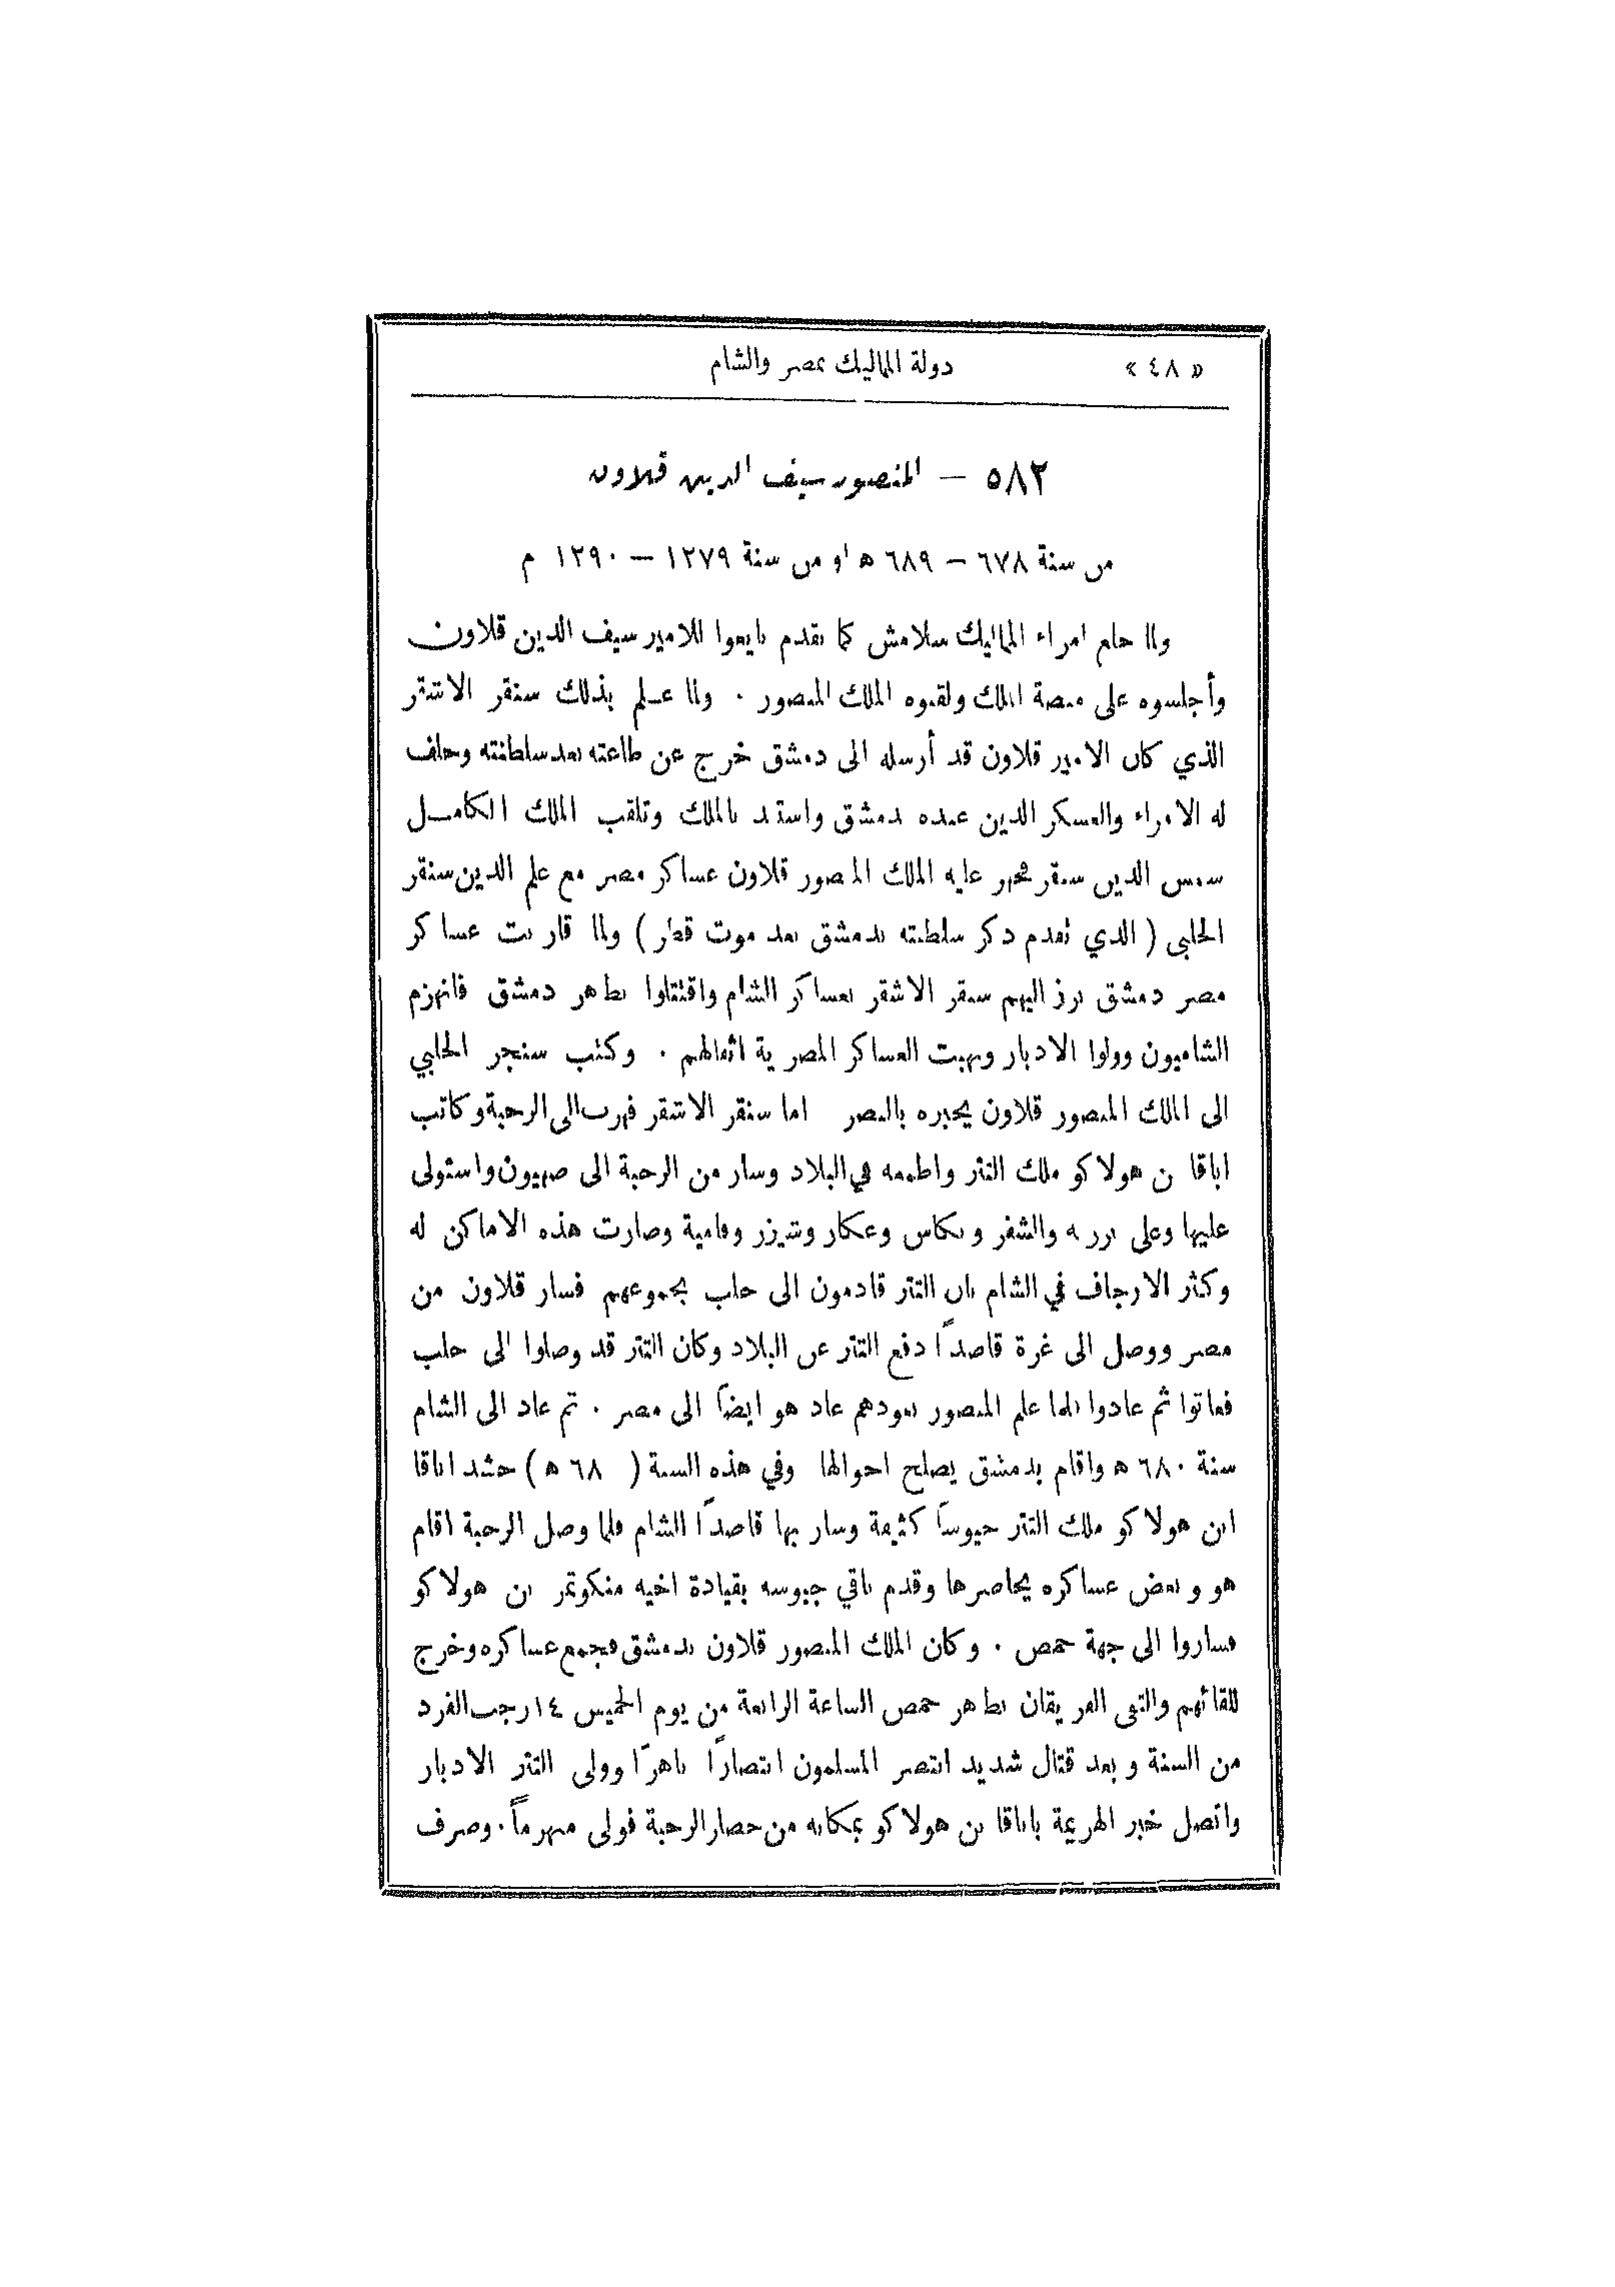 « ٤٨ » دولة المماليك بمصر والشام
٥٨٢ — المنصور سيف الدين قلاون
من سنة ٦٧٨ — ٦٨٩ ه او من سنة ١٢٧٩ — ١٢٩٠ م
ولما خلع امراء المماليك سلامش كما تقدم بايعوا للامير سيف الدين قلاون
وأجلسوه على منصة الملك ولقبوه الملك المنصور . ولما علم بذلك سنقر الاشقر
الذي كان الامير قلاون قد أرسله الى دمشق خرج عن طاعته بعد سلطنته وحلف
له الامراء والعسكر الذين عنده بدمشق واستبد بالملك وتلقب الملك الكامل
شمس الدين سنقر فجهز عليه الملك المنصور قلاون عساكر مصر مع علم الدين سنقر
الحلبي ( الذي تقدم ذكر سلطنته بدمشق بعد موت قطز ) ولما قاربت عساكر
مصر دمشق برز اليهم سنقر الاشقر بعساكر الشام واقتتلوا بظاهر دمشق فانهزم
الشاميون وولوا الادبار ونهبت العساكر المصرية اثقالهم . وكتب سنجر الحلبي
الى الملك المنصور قلاون يخبره بالنصر اما سنقر الاشقر فهرب الى الرحبة وكاتب
اباقا بن هولاكو ملك التتر واطمعه في البلاد وسار من الرحبة الى صهيون واستولى
عليها وعلى برزيه والشغر وبكاس وعكار وشيزر وفامية وصارت هذه الاماكن له
وكثر الارجاف في الشام بان التتر قادمون الى حلب بجموعهم فسار قلاون من
مصر ووصل الى غزة قاصداً دفع التتر عن البلاد وكان التتر قد وصلوا الى حلب
فعاثوا ثم عادوا فلما علم المنصور بعودهم عاد هو ايضاً الى مصر . ثم عاد الى الشام
سنة ٦٨٠ ه واقام بدمشق يصلح احوالها وفي هذه السنة ( ٦٨ ه ) حشد اباقا
ابن هولاكو ملك التتر جيوشاً كثيفة وسار بها قاصداً الشام فلما وصل الرحبة اقام
هو وبعض عساكره يحاصرها وقدم باقي جيوشه بقيادة اخيه منكوتمر بن هولاكو
فساروا الى جهة حمص . وكان الملك المنصور قلاون بدمشق فجمع عساكره وخرج
للقائهم والتقى الفريقان بظاهر حمص الساعة الرابعة من يوم الخميس ١٤ رجب الفرد
من السنة وبعد قتال شديد انتصر المسلمون انتصاراً باهراً وولى التتر الادبار
واتصل خبر الهزيمة باباقا بن هولاكو بمكانه من حصار الرحبة فولى منهزماً . وصرف